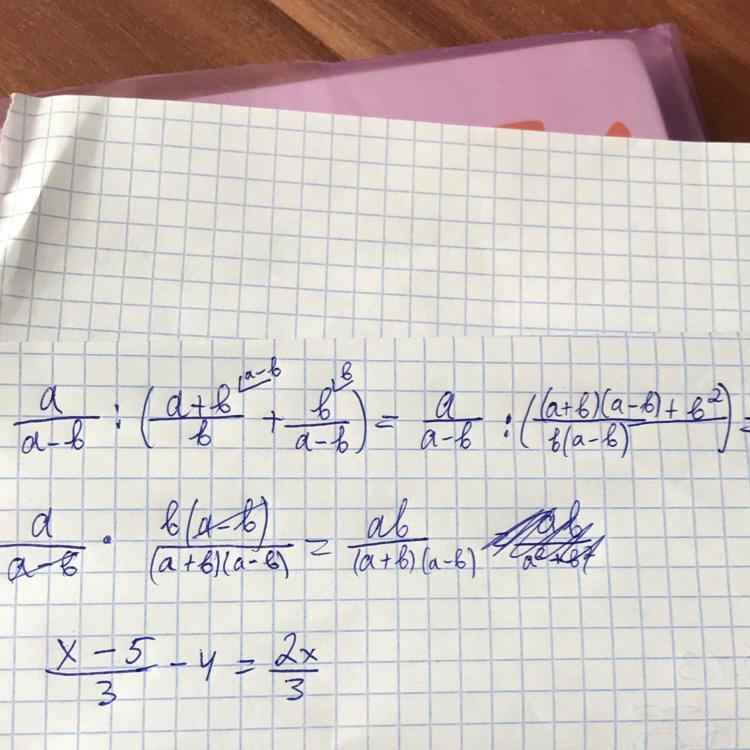 a/(a-b) : ((a+b)/b + b/(a-b)) = a/(a-b) : (((a+b)(a-b) + b²)/(b(a-b))) =
a/(a-b) · b(a-b)/((a+b)(a-b)) = ab/((a+b)(a-b))
(x-5)/3 - 4 = 2x/3